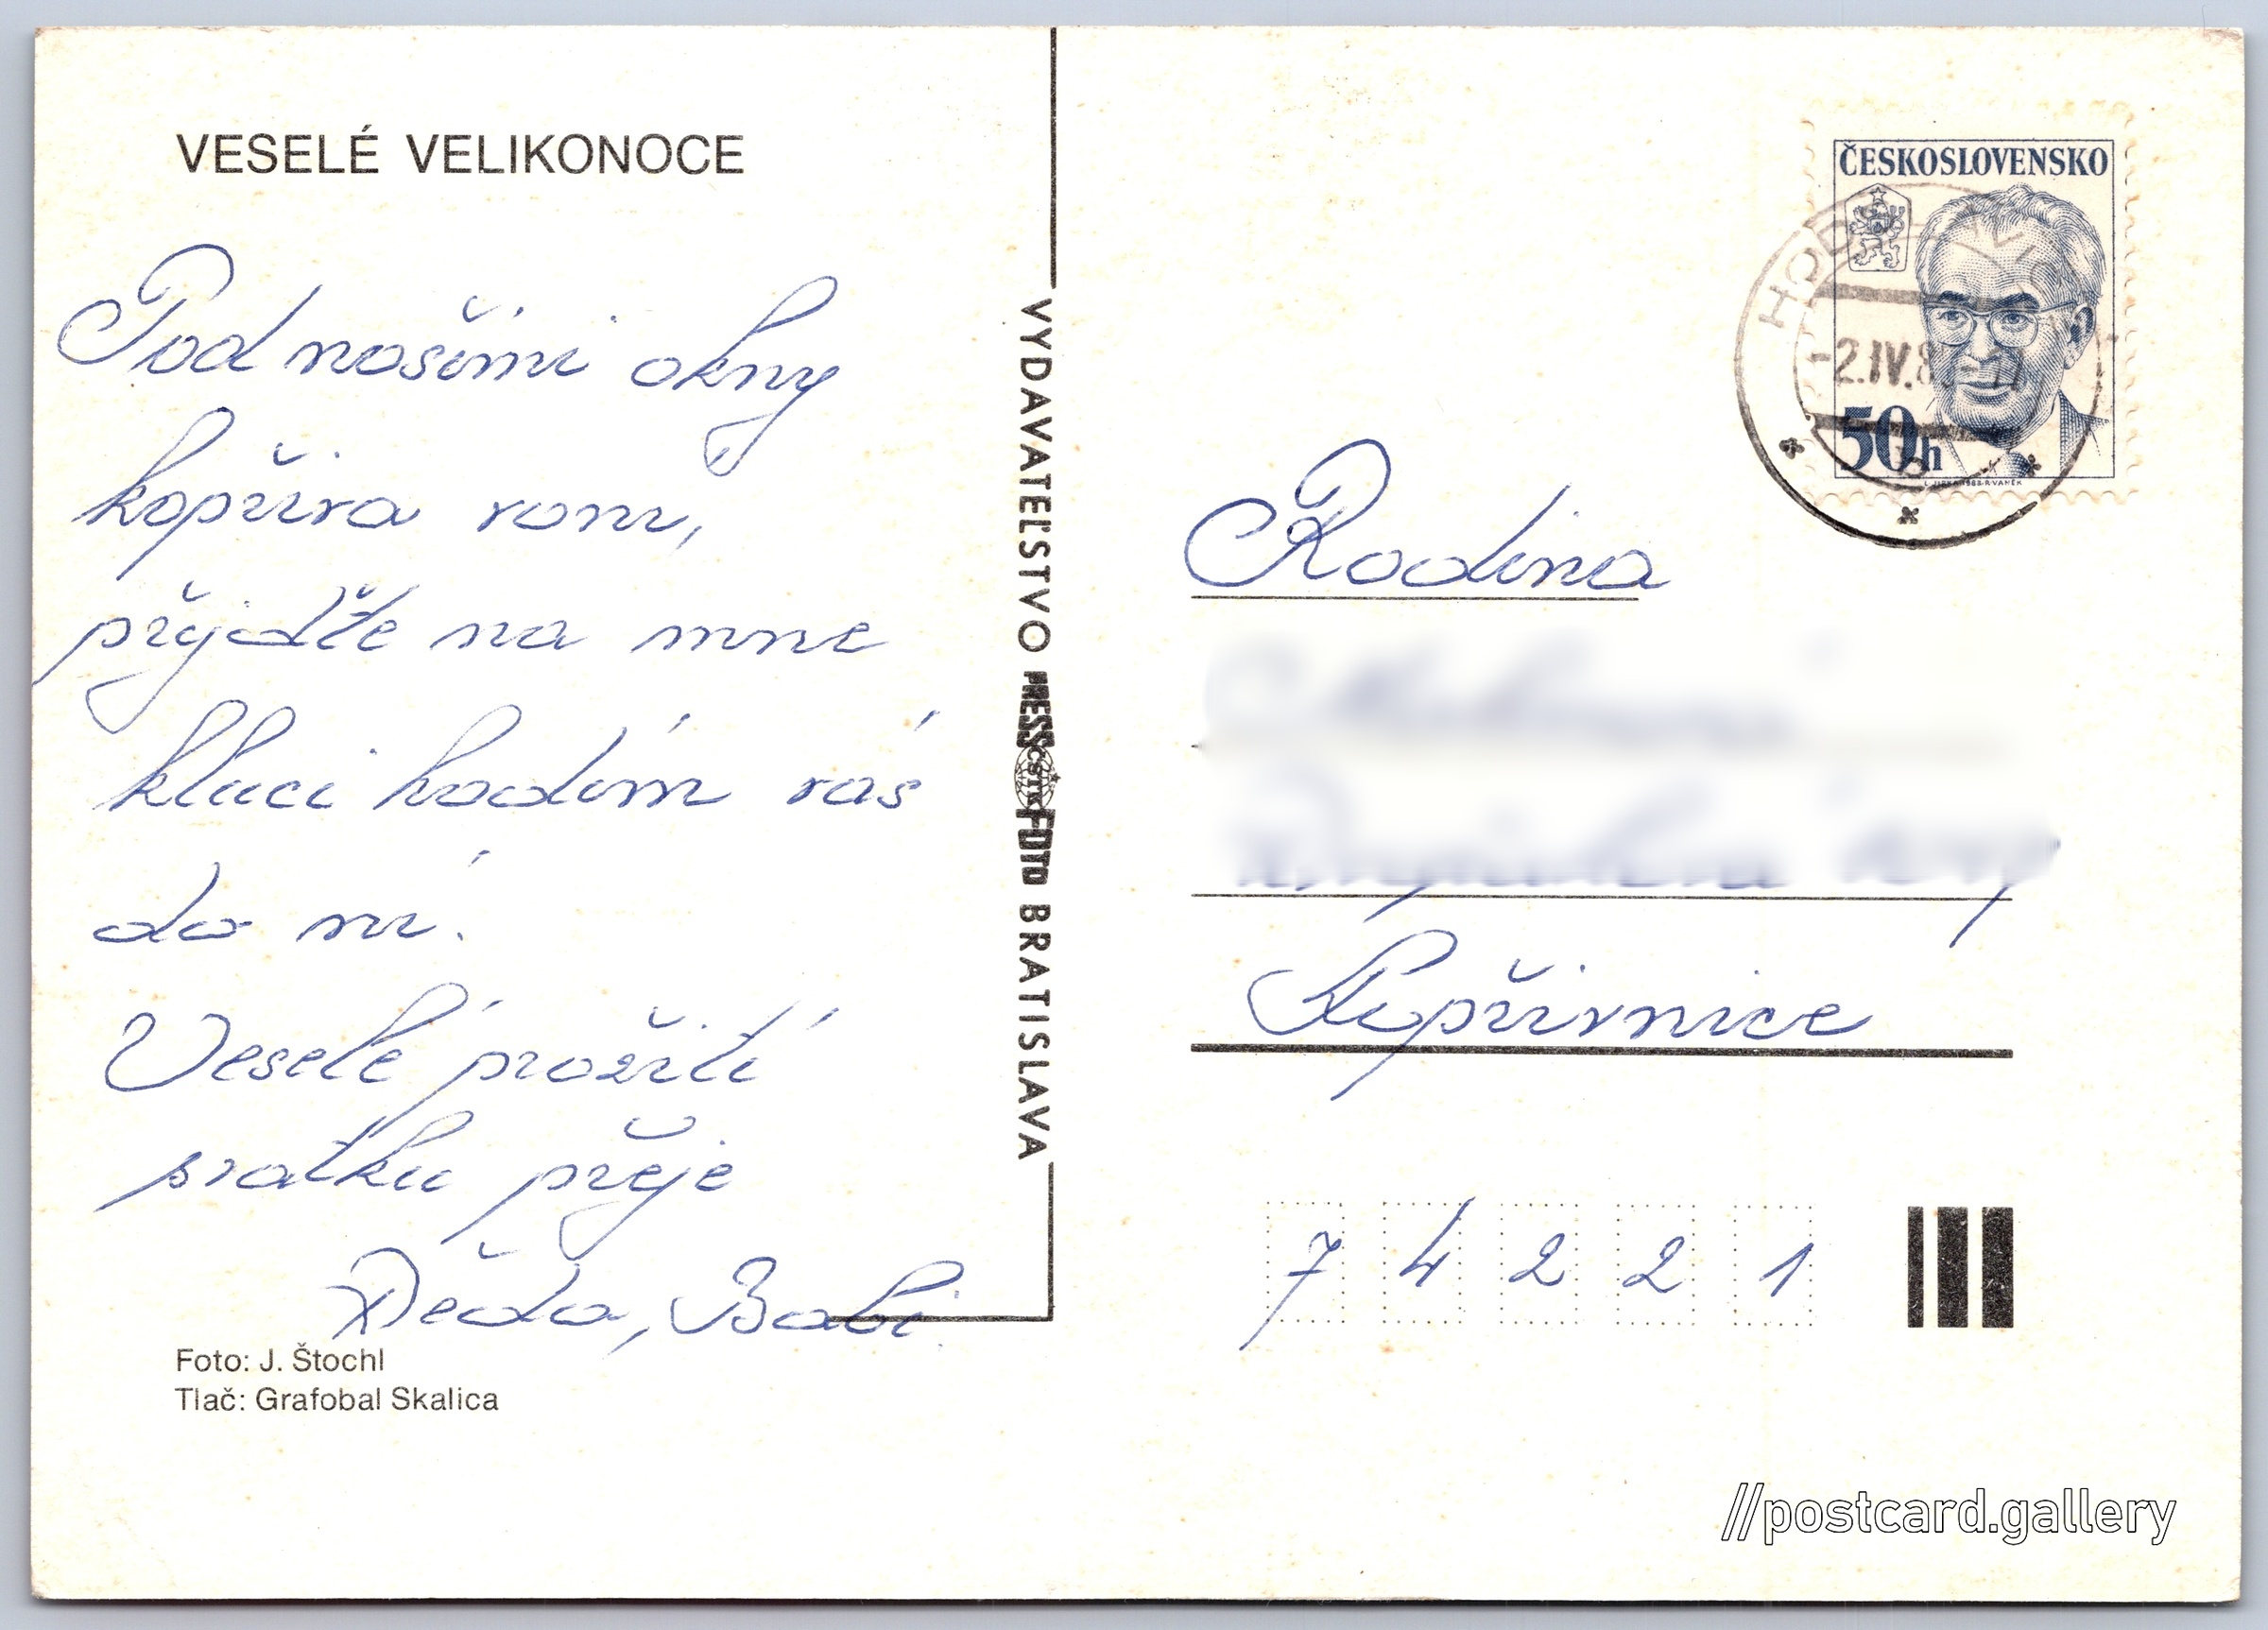 VESELÉ VELIKONOCE
Pod našimi okny
kopřiva voní,
přijďte na mne
kluci hodím vás
do ní.
Veselé prožití
svátků přeje
Děda, Babi.
Foto: J. Štochl
Tlač: Grafobal Skalica
VYDAVATEĽSTVO PRESSFOTO BRATISLAVA
ČSTK
ČESKOSLOVENSKO
50h
-2.IV.8
Rodina
Kopřivnice
7 4 2 2 1
//postcard.gallery